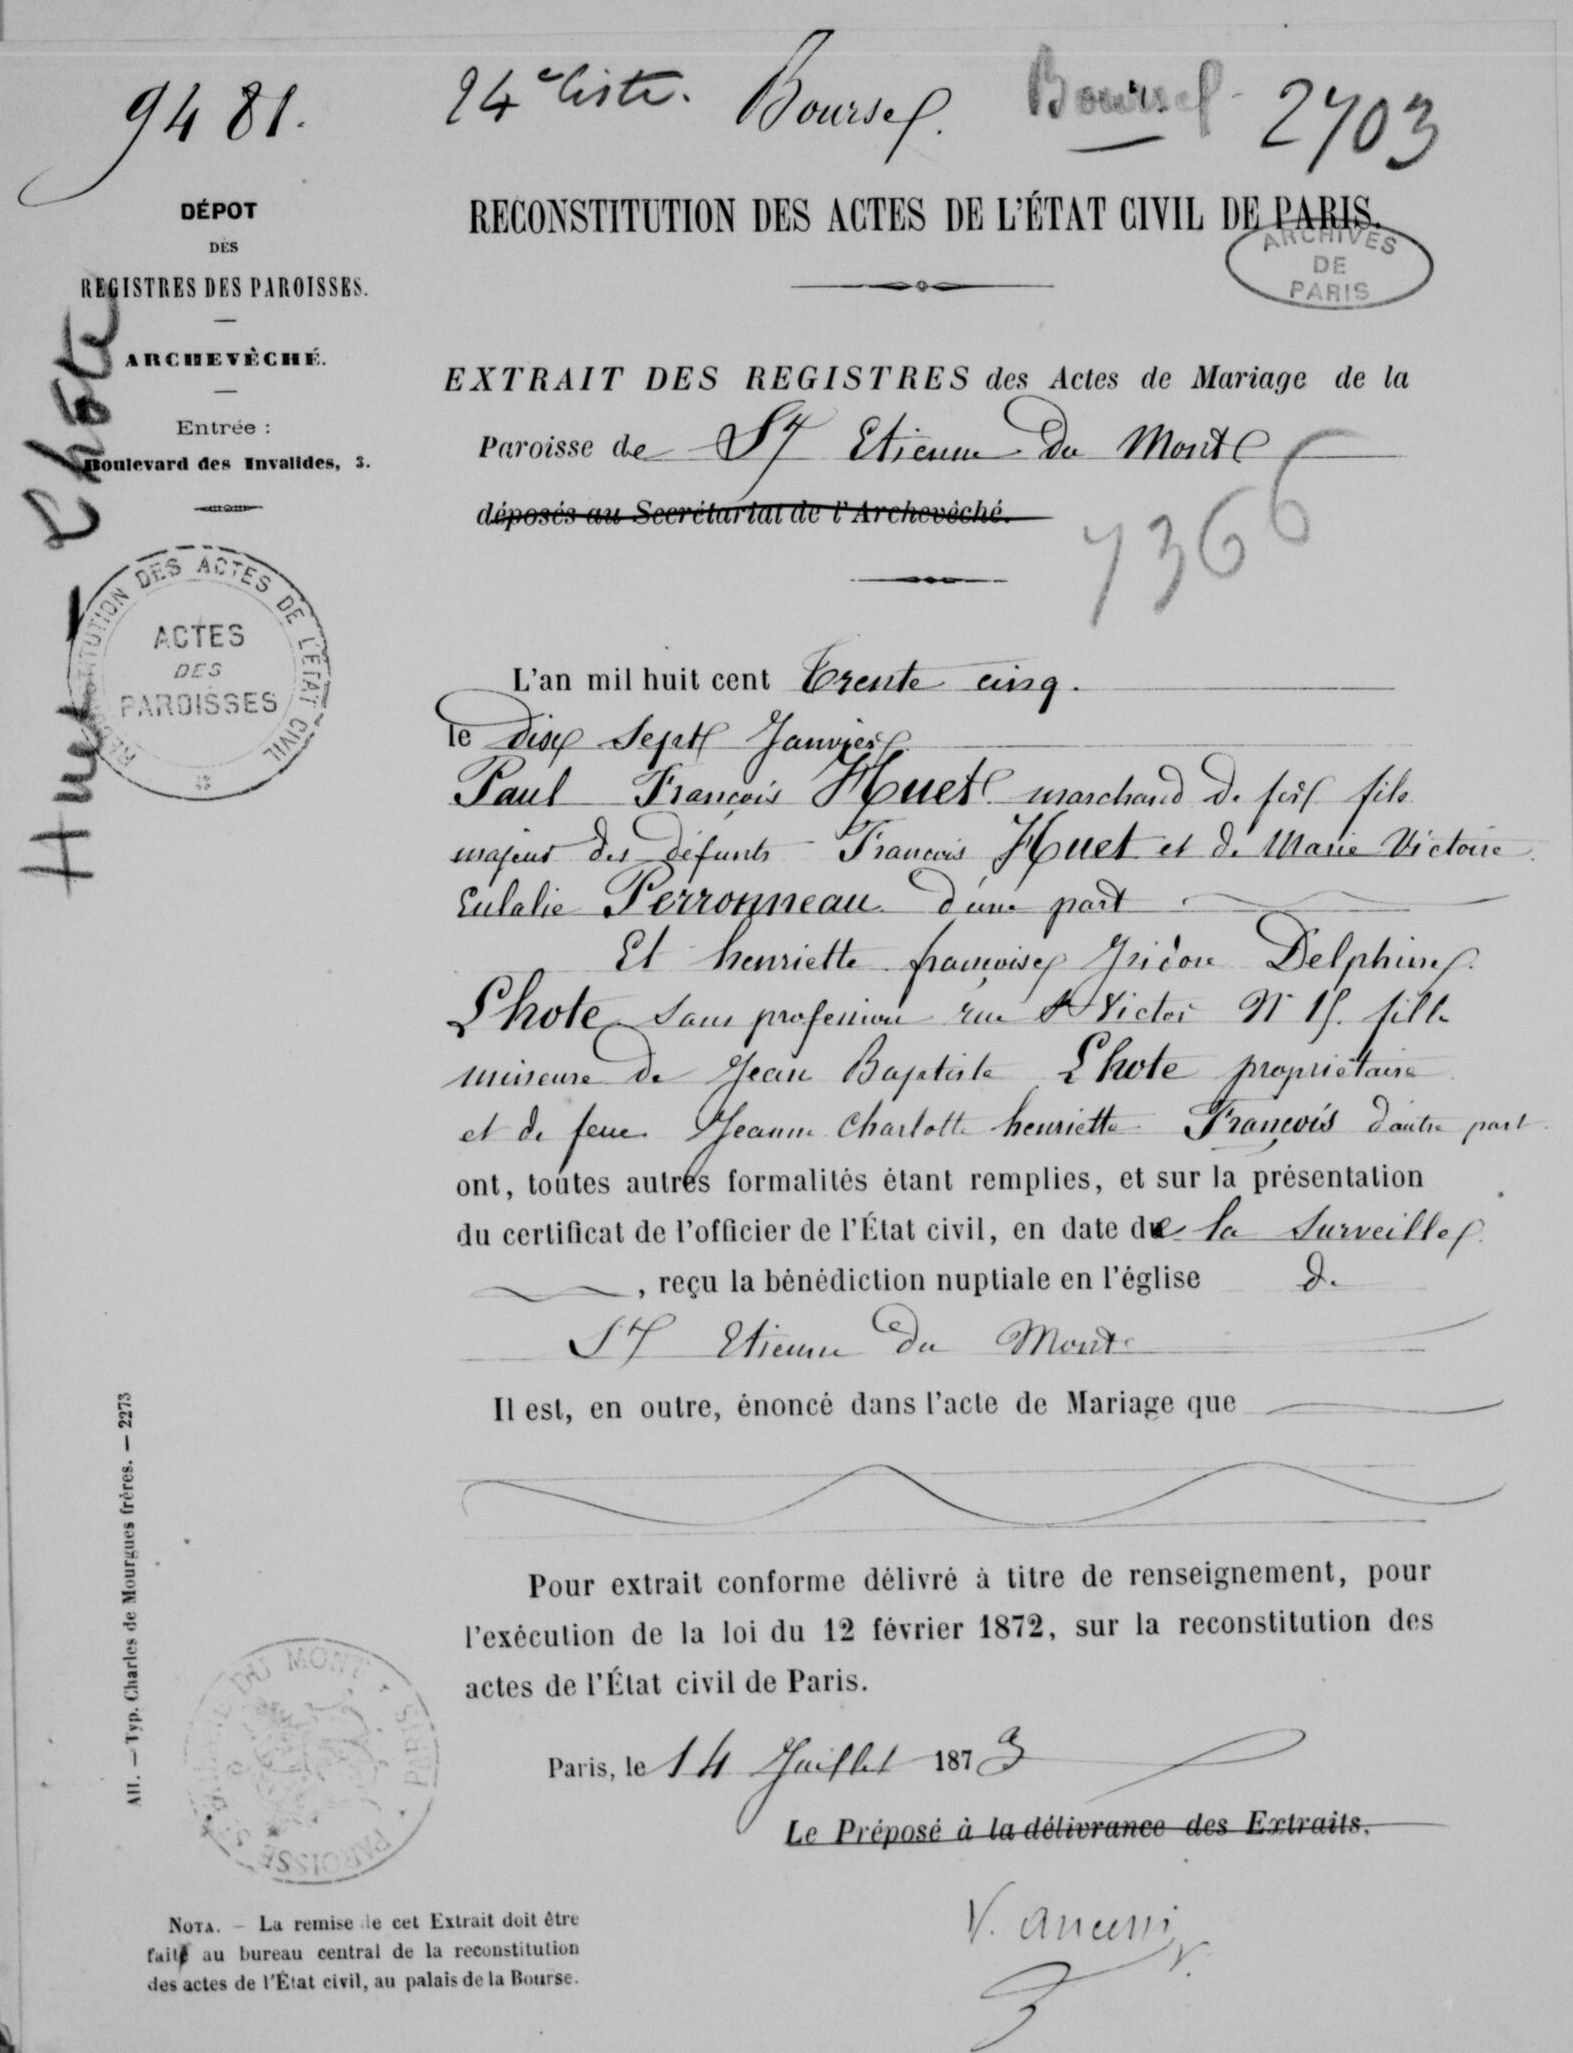 9481.
24e liste.
Bourse.
Bourse
2703
DÉPOT
DES
REGISTRES DES PAROISSES.
ARCHEVÊCHÉ.
Entrée :
Boulevard des Invalides, 3.
Huet – Lhôte
RECONSTITUTION DES ACTES DE L'ÉTAT CIVIL
ACTES
DES
PAROISSES
RECONSTITUTION DES ACTES DE L'ÉTAT CIVIL DE PARIS.
ARCHIVES
DE
PARIS
EXTRAIT DES REGISTRES des Actes de Mariage de la
Paroisse de St Etienne du Mont
déposés au Secrétariat de l'Archevêché.
7366
L'an mil huit cent trente cinq.
le dix sept Janvier
Paul François Huet marchand de fer fils
majeur des défunts François Huet et de Marie Victoire
Eulalie Perronneau d'une part
Et henriette françoise Delphine
Lhote sans profession rue St Victor N° fille
mineure de Jean Baptiste Lhote propriétaire
et de feue Jeanne Charlotte henriette François d'autre part
ont, toutes autres formalités étant remplies, et sur la présentation
du certificat de l'officier de l'État civil, en date de la surveille
, reçu la bénédiction nuptiale en l'église de
St Etienne du Mont
Il est, en outre, énoncé dans l'acte de Mariage que
Pour extrait conforme délivré à titre de renseignement, pour
l'exécution de la loi du 12 février 1872, sur la reconstitution des
actes de l'État civil de Paris.
Paris, le 14 Juillet 1873
Le Préposé à la délivrance des Extraits.
V.
All. — Typ. Charles de Mourgues frères. — 2273
PAROISSE ST ETIENNE DU MONT
PARIS
NOTA. – La remise de cet Extrait doit être
faite au bureau central de la reconstitution
des actes de l'État civil, au palais de la Bourse.